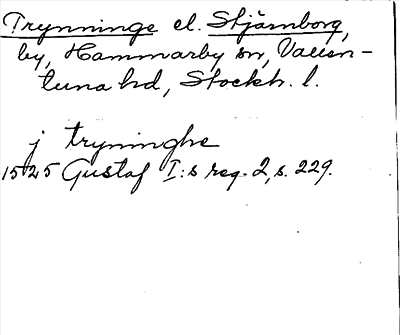 Trynninge el. Stjärnborg,
by, Hammarby sn, Vallen-
tuna hd, Stockh. l.
j tryninghe
1525 Gustaf I:s reg. 2, s. 229.